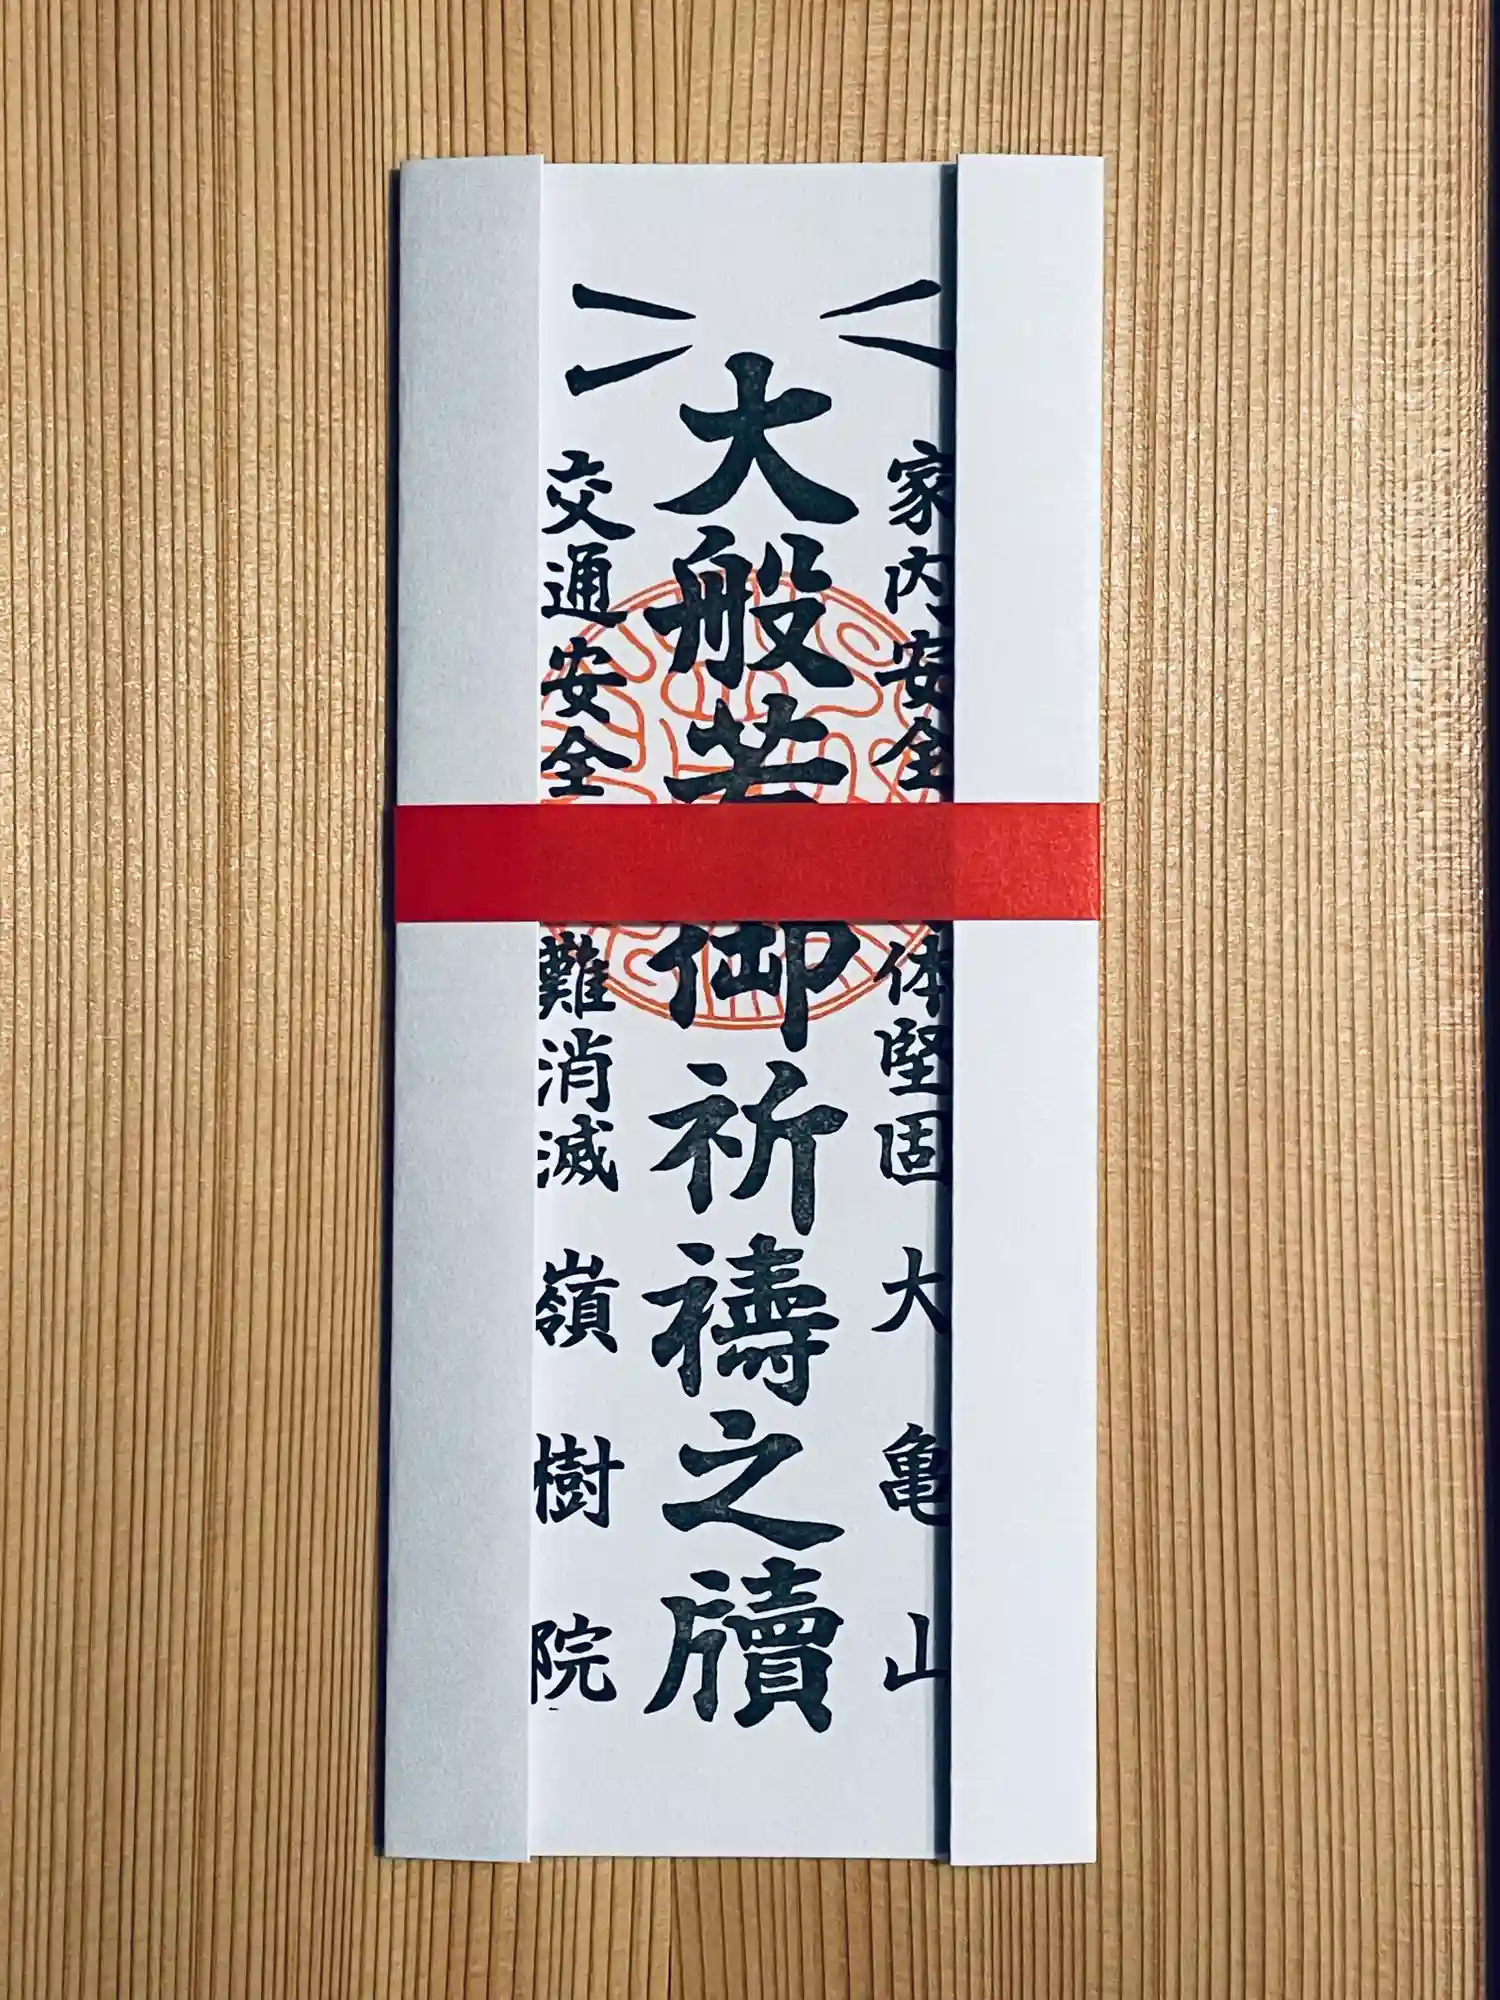 家内安全
体堅固
大亀山
大般若御祈祷之牘
交通安全
難消滅
嶺樹院